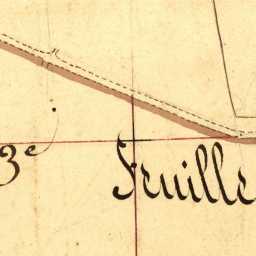 3e Feuille